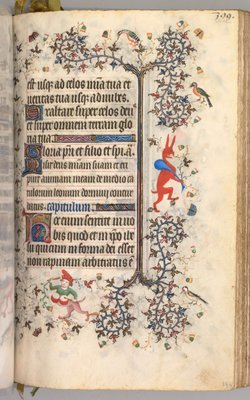 est usq ad celos mia tua et
ueritas tua usq ad nubes.
Exaltare super celos deus
et super omnem terram glo
ria tua.
Gloria pri et filio et spi
Misit deus miam suam et eri
puit animam meam de medio ca
tulorum leonum dormiui contur
batus. capitulum.
Hoc enim sentite in uo
bis quod et in xpo ihu
qui cum in forma dei esset
non rapinam arbitratus est